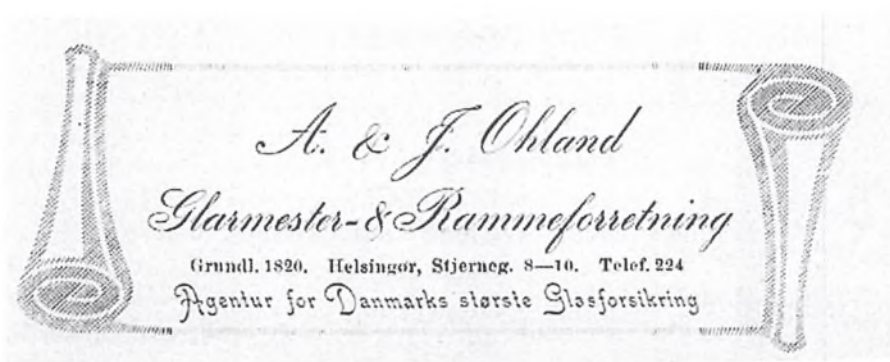 A. & J. Ohland
Glarmester- & Rammeforretning
Grundl. 1820. Helsingør, Stjerneg. 8—10. Telef. 224
Agentur for Danmarks største Glasforsikring